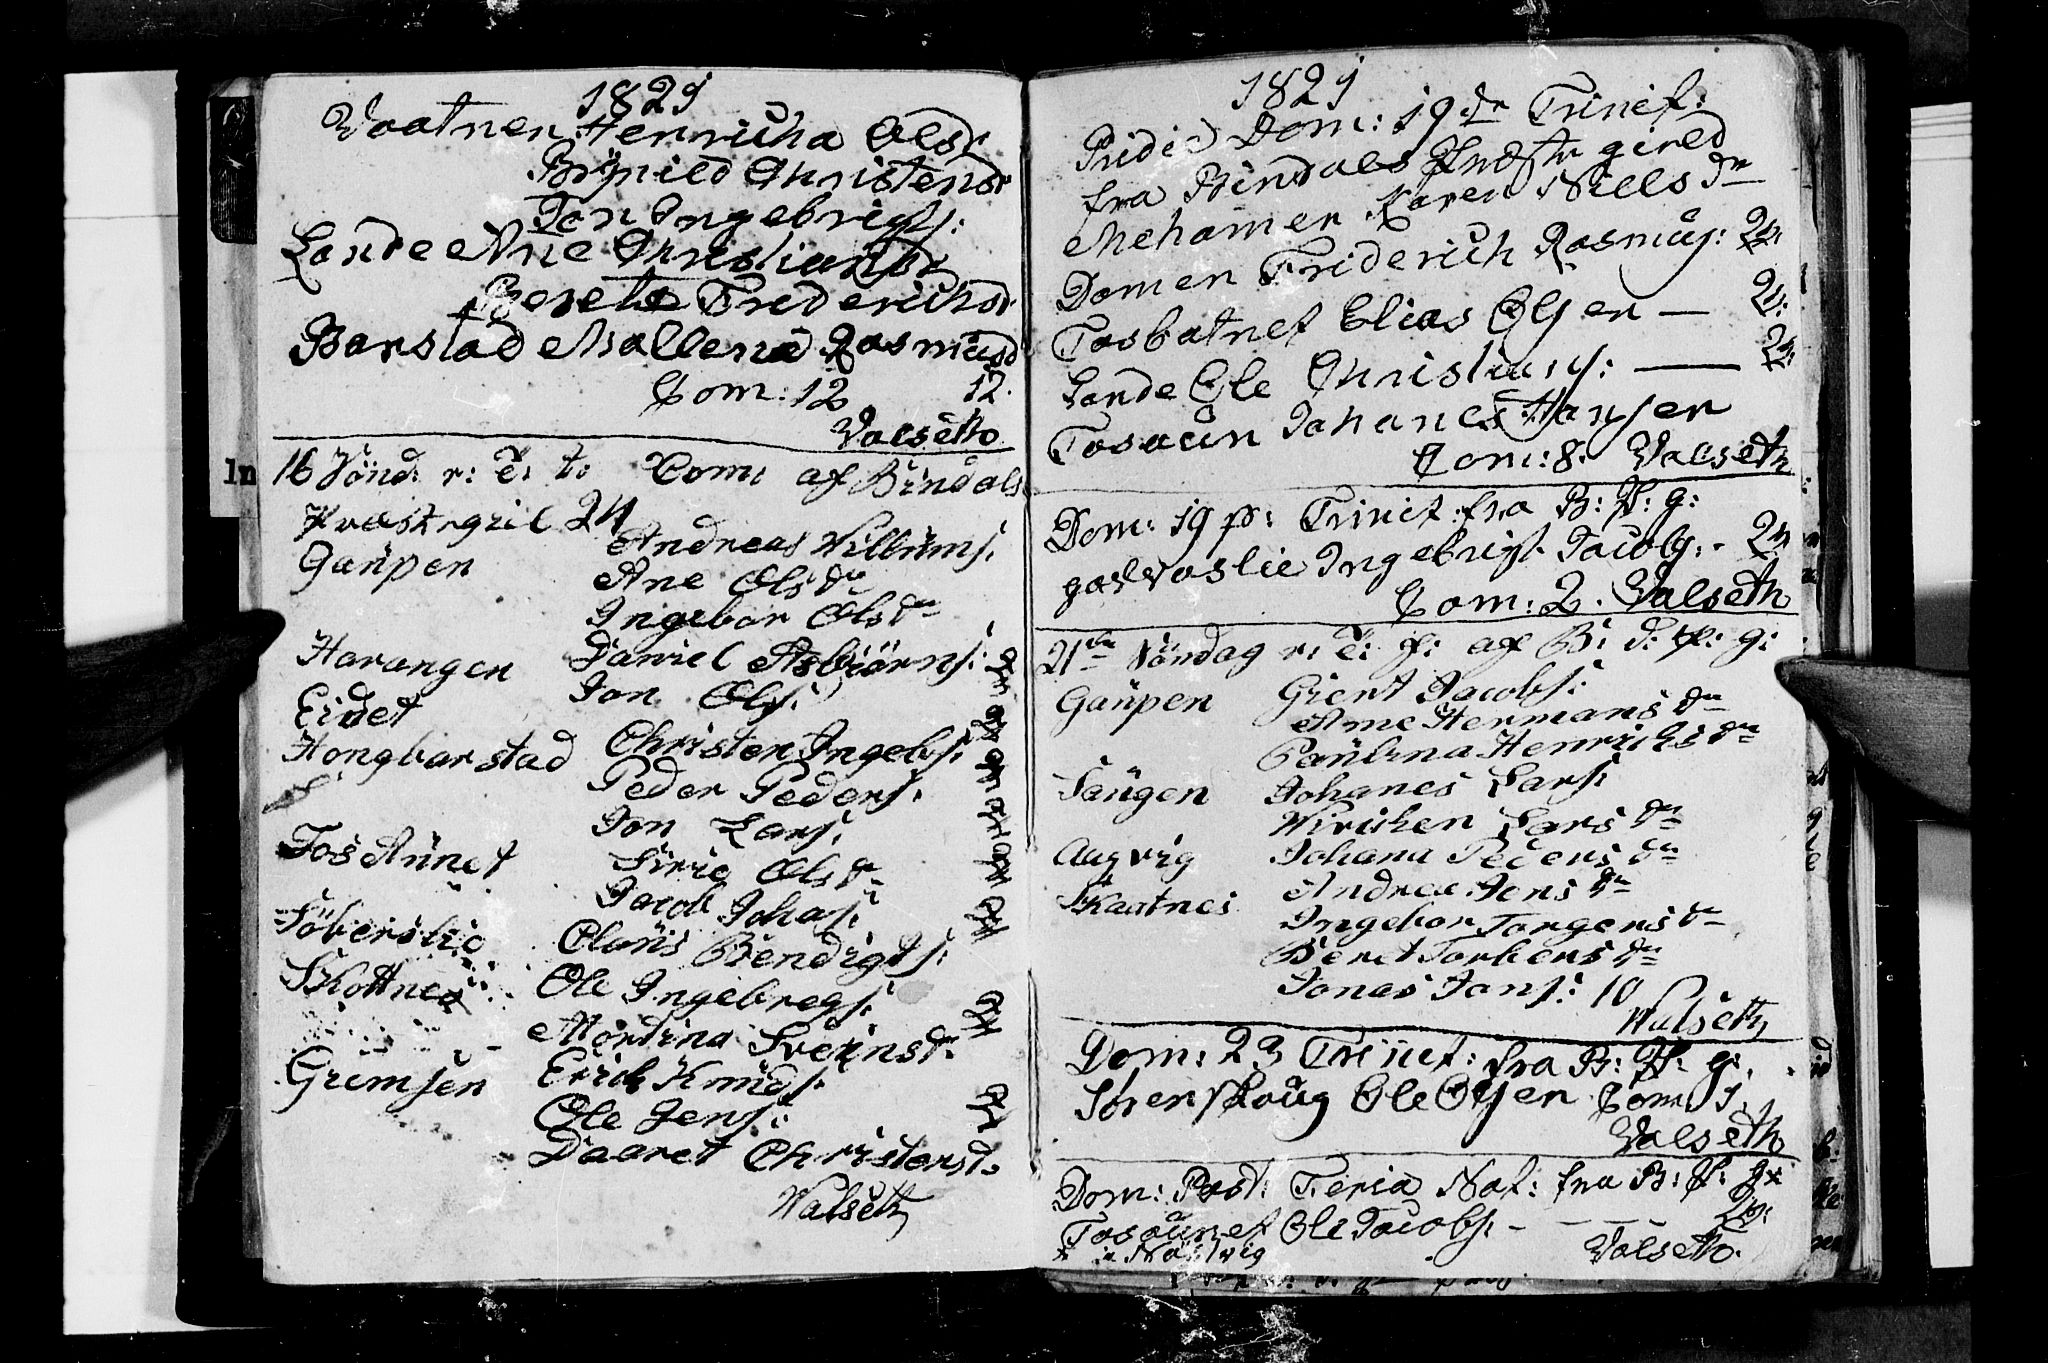 1829
Vaatnen Henricha Olsdr
Brynild Christensdr
Jan Ingebrigts:
Lande Ane Christiansdr
Berete Friderichsdr
Barstad Mallena Rasmusd
Com: 12 12.
Valseth
16 Sönd: r: T: t: Com: af Bindals
Præstegiel 24
Gaüpen Andreas Villumsj:
Ane Olsdr
Ingebor Olsdr
Harangen Daniel Asbiörnsj:
Eidet Jon Olsj:
Hongbarstad Christen Ingebsj:
Peder Pedersj:
Jon Larsj:
Tos Aünet Sirie Olsdr
Jacob Johasj:
Söberslie Claüs Bendigtsj:
Skottnes Ole Ingebregsj:
Mortina Sveinsdr
Gremsen Erich Knüdsj:
Ole Jensj:
Daaret Christensd.
Walseth
1829
Pridie Dom: 19de Trinit:
fra Bindals Præstegield
Mehamen Karen Nielsdr
Domen Friderich Rasmusj: 2
Tosbotnet Elias Olsen — 2
Lande Ole Christiansj: — 2
Tosaün Johanes Hansen
Com: 8. Valseth
Dom: 19 p: Trinit: fra B: P: g:
godvaslie Ingebrigt Jacobsj: - 2
Com: 2. Valseth
21de Söndag r: T: f: af B: d: P: g:
Gaüpen Gient Jacobsj:
Ane Hermansdr
Paülina Henrichsdr
Saügen Johanes Larsj:
Wirichen Larsdr
Aagvig Johana Pedersdr
Skaatnes Andrea Jensdr
Ingebor Torgersdr
Beret Torbersdr
Jonas Jonsj: 10
Walseth
Dom: 23 Trinit: fra B: P: g:
Sörenskoug Ole Olsen Com: 1
Valseth
Dom: Post: Feria Nat: fra B: P: g:
Tosaünet Ole Jacobsj: - - - 2
Valseth.